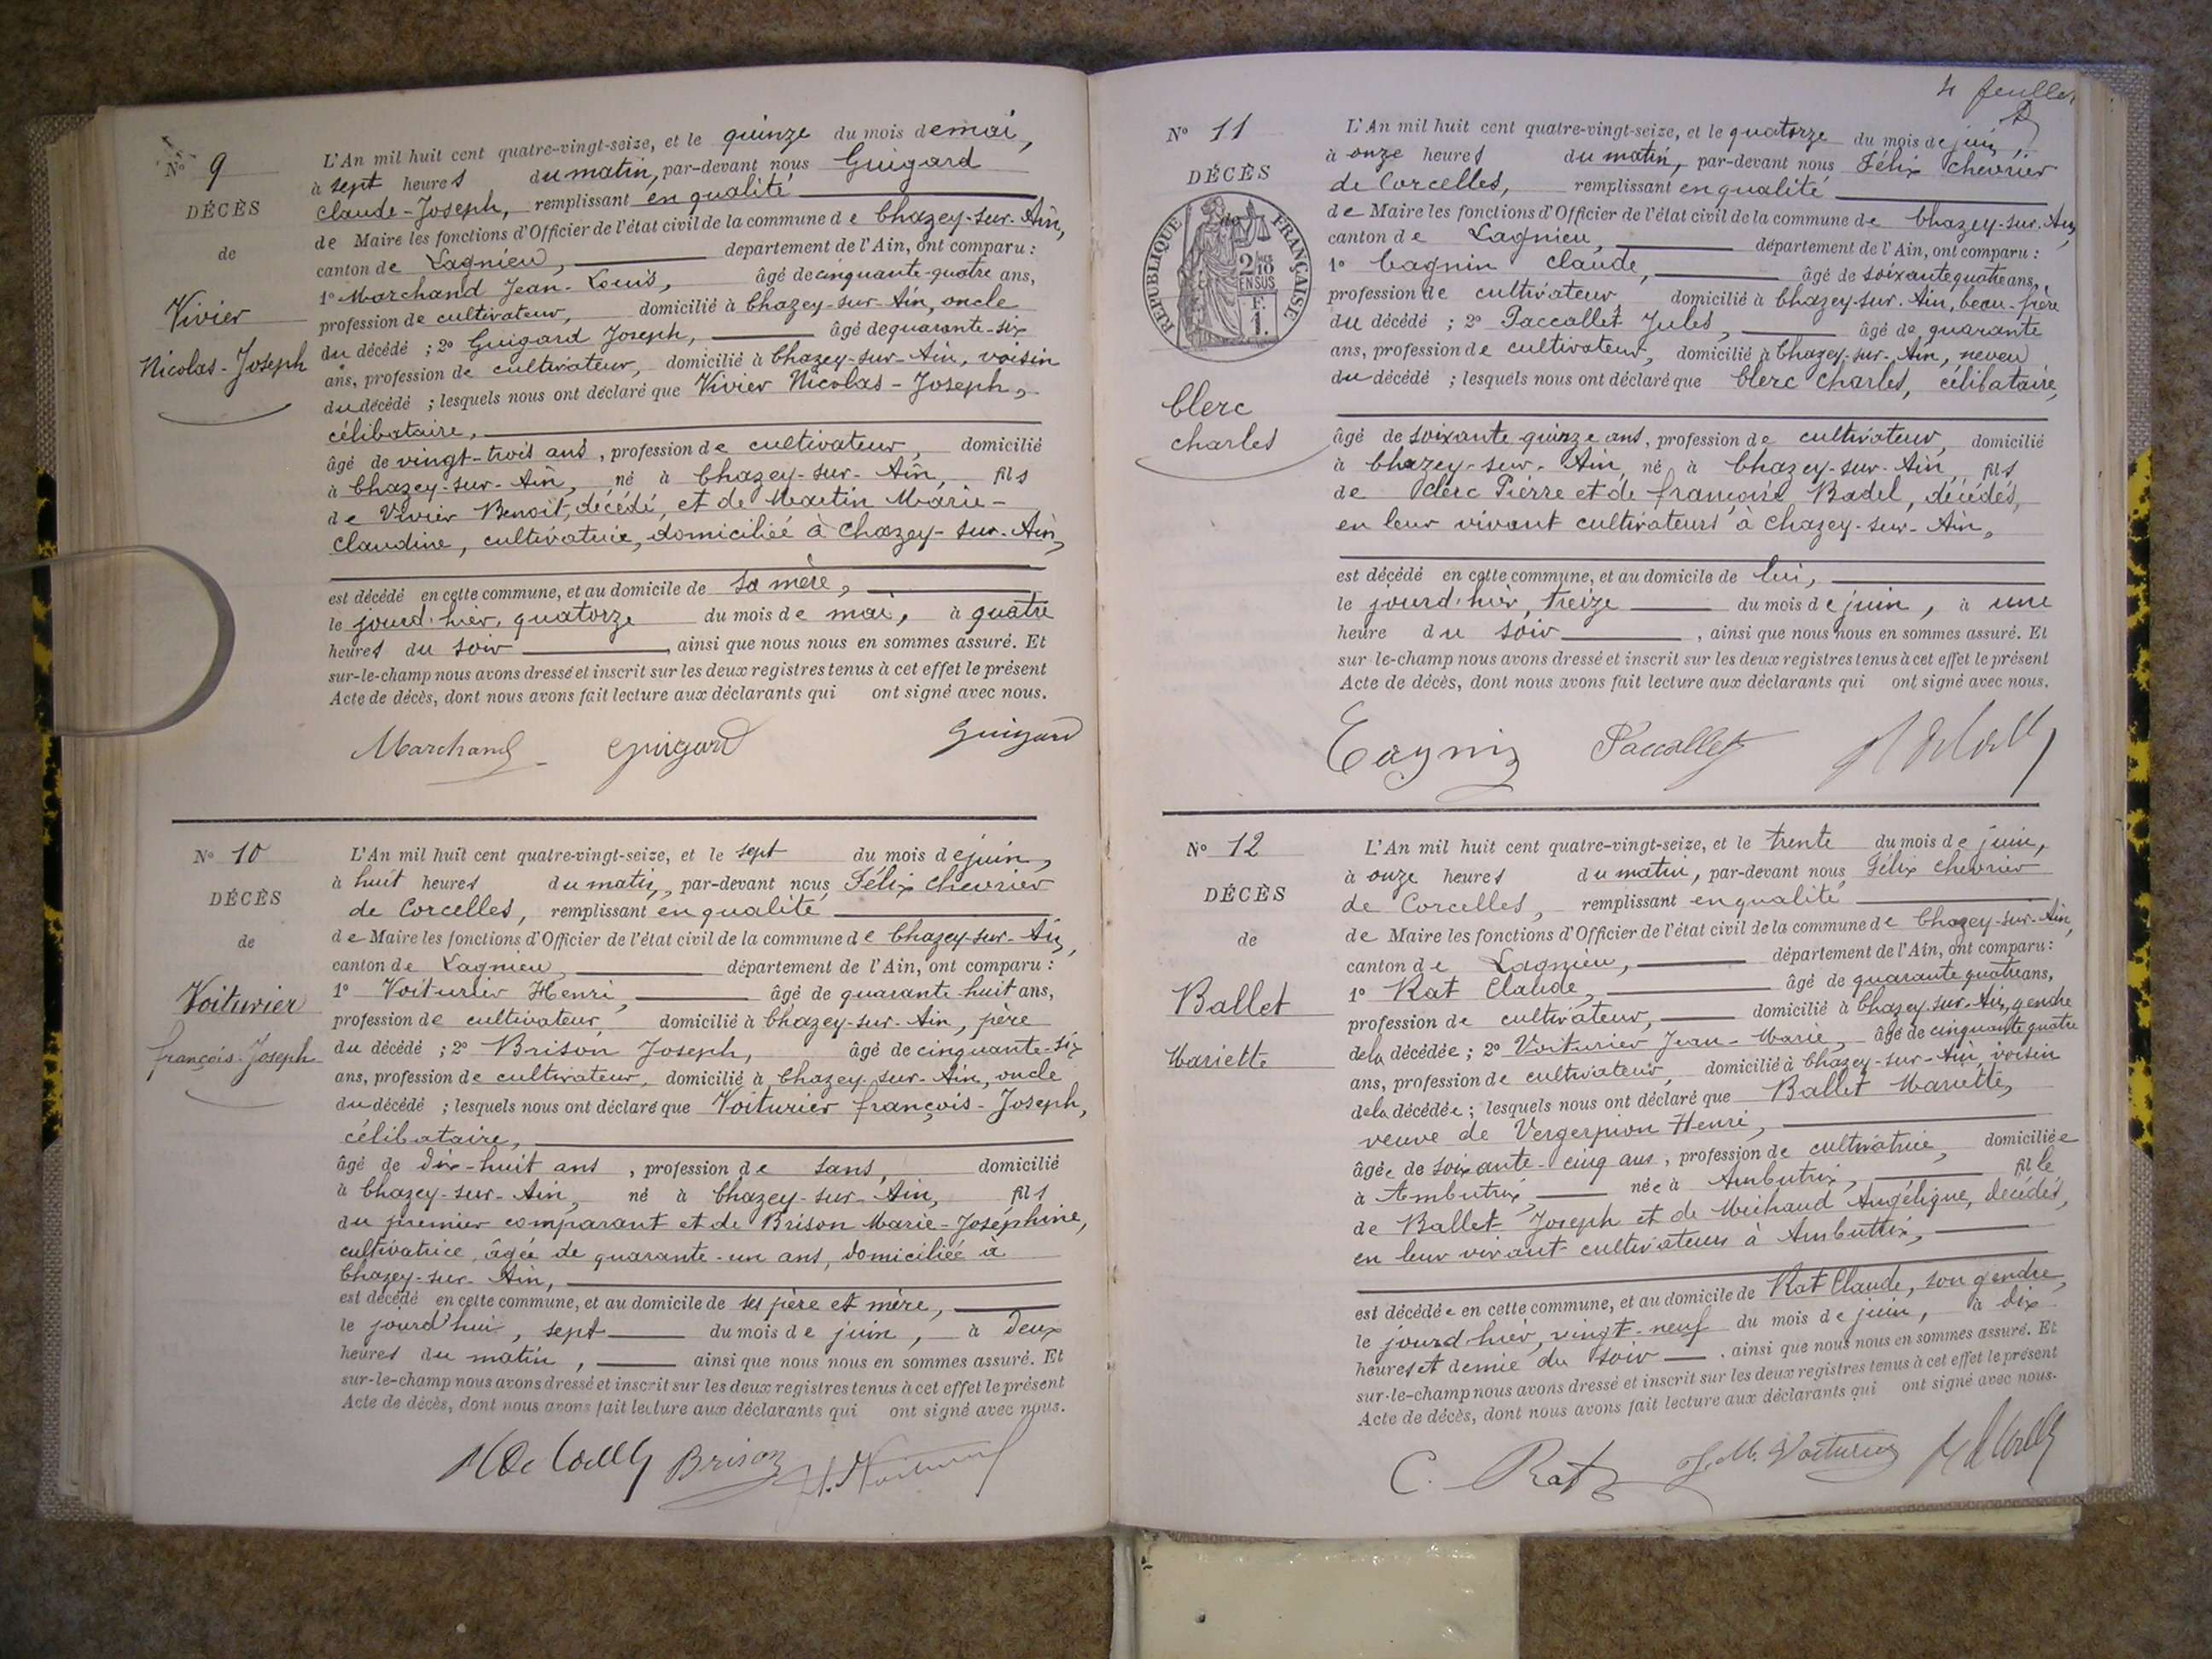 N° 9
DÉCÈS
de
Vivier
Nicolas-Joseph
L'An mil huit cent quatre-vingt-seize, et le quinze du mois de mai,
à sept heures du matin, par-devant nous Guigard
Claude-Joseph, remplissant en qualité
de Maire les fonctions d'Officier de l'état civil de la commune de Chazey-sur-Ain,
canton de Lagnieu, département de l'Ain, ont comparu :
1° Marchand Jean-Louis, âgé de cinquante-quatre ans,
profession de cultivateur, domicilié à Chazey-sur-Ain, oncle
du décédé ; 2° Guigard Joseph, âgé de quarante-six
ans, profession de cultivateur, domicilié à Chazey-sur-Ain, voisin
du décédé ; lesquels nous ont déclaré que Vivier Nicolas-Joseph,
célibataire,
âgé de vingt-trois ans, profession de cultivateur, domicilié
à Chazey-sur-Ain, né à Chazey-sur-Ain, fils
de Vivier Benoit, décédé, et de Martin Marie-
Claudine, cultivatrice, domiciliée à Chazey-sur-Ain,
est décédé en cette commune, et au domicile de sa mère,
le jourd'hier, quatorze du mois de mai, à quatre
heures du soir, ainsi que nous nous en sommes assuré. Et
sur-le-champ nous avons dressé et inscrit sur les deux registres tenus à cet effet le présent
Acte de décès, dont nous avons fait lecture aux déclarants qui ont signé avec nous.
Marchand Guigard Guigard
N° 10
DÉCÈS
de
Voiturier
françois-Joseph
L'An mil huit cent quatre-vingt-seize, et le sept du mois de juin,
à huit heures du matin, par-devant nous Félix Chevrier
de Corcelles, remplissant en qualité
de Maire les fonctions d'Officier de l'état civil de la commune de Chazey-sur-Ain,
canton de Lagnieu, département de l'Ain, ont comparu :
1° Voiturier Henri, âgé de quarante-huit ans,
profession de cultivateur, domicilié à Chazey-sur-Ain, père
du décédé ; 2° Brison Joseph, âgé de cinquante-six
ans, profession de cultivateur, domicilié à Chazey-sur-Ain, oncle
du décédé ; lesquels nous ont déclaré que Voiturier françois-Joseph,
célibataire,
âgé de dix-huit ans, profession de sans, domicilié
à Chazey-sur-Ain, né à Chazey-sur-Ain, fils
du premier comparant et de Brison Marie-Joséphine,
cultivatrice, âgée de quarante-un ans, domiciliée à
Chazey-sur-Ain,
est décédé en cette commune, et au domicile de ses père et mère,
le jourd'hui, sept du mois de juin, à deux
heures du matin, ainsi que nous nous en sommes assuré. Et
sur-le-champ nous avons dressé et inscrit sur les deux registres tenus à cet effet le présent
Acte de décès, dont nous avons fait lecture aux déclarants qui ont signé avec nous.
Brison H. Voiturier
4 feuillet
N° 11
DÉCÈS
de
RÉPUBLIQUE FRANÇAISE
2/10 EN SUS
F. 1.
Clerc
Charles
L'An mil huit cent quatre-vingt-seize, et le quatorze du mois de juin,
à onze heures du matin, par-devant nous Félix Chevrier
de Corcelles, remplissant en qualité
de Maire les fonctions d'Officier de l'état civil de la commune de Chazey-sur-Ain,
canton de Lagnieu, département de l'Ain, ont comparu :
1° Cagnin Claude, âgé de soixante quatre ans,
profession de cultivateur, domicilié à Chazey-sur-Ain, beau-frère
du décédé ; 2° Paccallet Jules, âgé de quarante
ans, profession de cultivateur, domicilié à Chazey-sur-Ain, neveu
du décédé ; lesquels nous ont déclaré que Clerc Charles, célibataire,
âgé de soixante quinze ans, profession de cultivateur, domicilié
à Chazey-sur-Ain, né à Chazey-sur-Ain, fils
de Clerc Pierre et de françoise Badel, décédés,
en leur vivant cultivateurs à Chazey-sur-Ain,
est décédé en cette commune, et au domicile de lui,
le jourd'hier, treize du mois de juin, à une
heure du soir, ainsi que nous nous en sommes assuré. Et
sur-le-champ nous avons dressé et inscrit sur les deux registres tenus à cet effet le présent
Acte de décès, dont nous avons fait lecture aux déclarants qui ont signé avec nous.
Cagnin Paccallet
N° 12
DÉCÈS
de
Ballet
Mariette
L'An mil huit cent quatre-vingt-seize, et le trente du mois de juin,
à onze heures du matin, par-devant nous Félix Chevrier
de Corcelles, remplissant en qualité
de Maire les fonctions d'Officier de l'état civil de la commune de Chazey-sur-Ain,
canton de Lagnieu, département de l'Ain, ont comparu :
1° Rat Claude, âgé de quarante quatre ans,
profession de cultivateur, domicilié à Chazey-sur-Ain, gendre
de la décédée ; 2° Voiturier Jean-Marie, âgé de cinquante quatre
ans, profession de cultivateur, domicilié à Chazey-sur-Ain, voisin
de la décédée ; lesquels nous ont déclaré que Ballet Mariette,
veuve de Vergerpion Henri,
âgée de soixante-cinq ans, profession de cultivatrice, domiciliée
à Ambutrix, née à Ambutrix, fille
de Ballet Joseph et de Michaud Angélique, décédés,
en leur vivant cultivateurs à Ambutrix,
est décédée en cette commune, et au domicile de Rat Claude, son gendre,
le jourd'hier, vingt-neuf du mois de juin, à dix
heures et demie du soir, ainsi que nous nous en sommes assuré. Et
sur-le-champ nous avons dressé et inscrit sur les deux registres tenus à cet effet le présent
Acte de décès, dont nous avons fait lecture aux déclarants qui ont signé avec nous.
C. Rat J. M. Voiturier